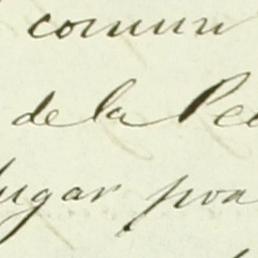 comun
de la Pe
lugar por